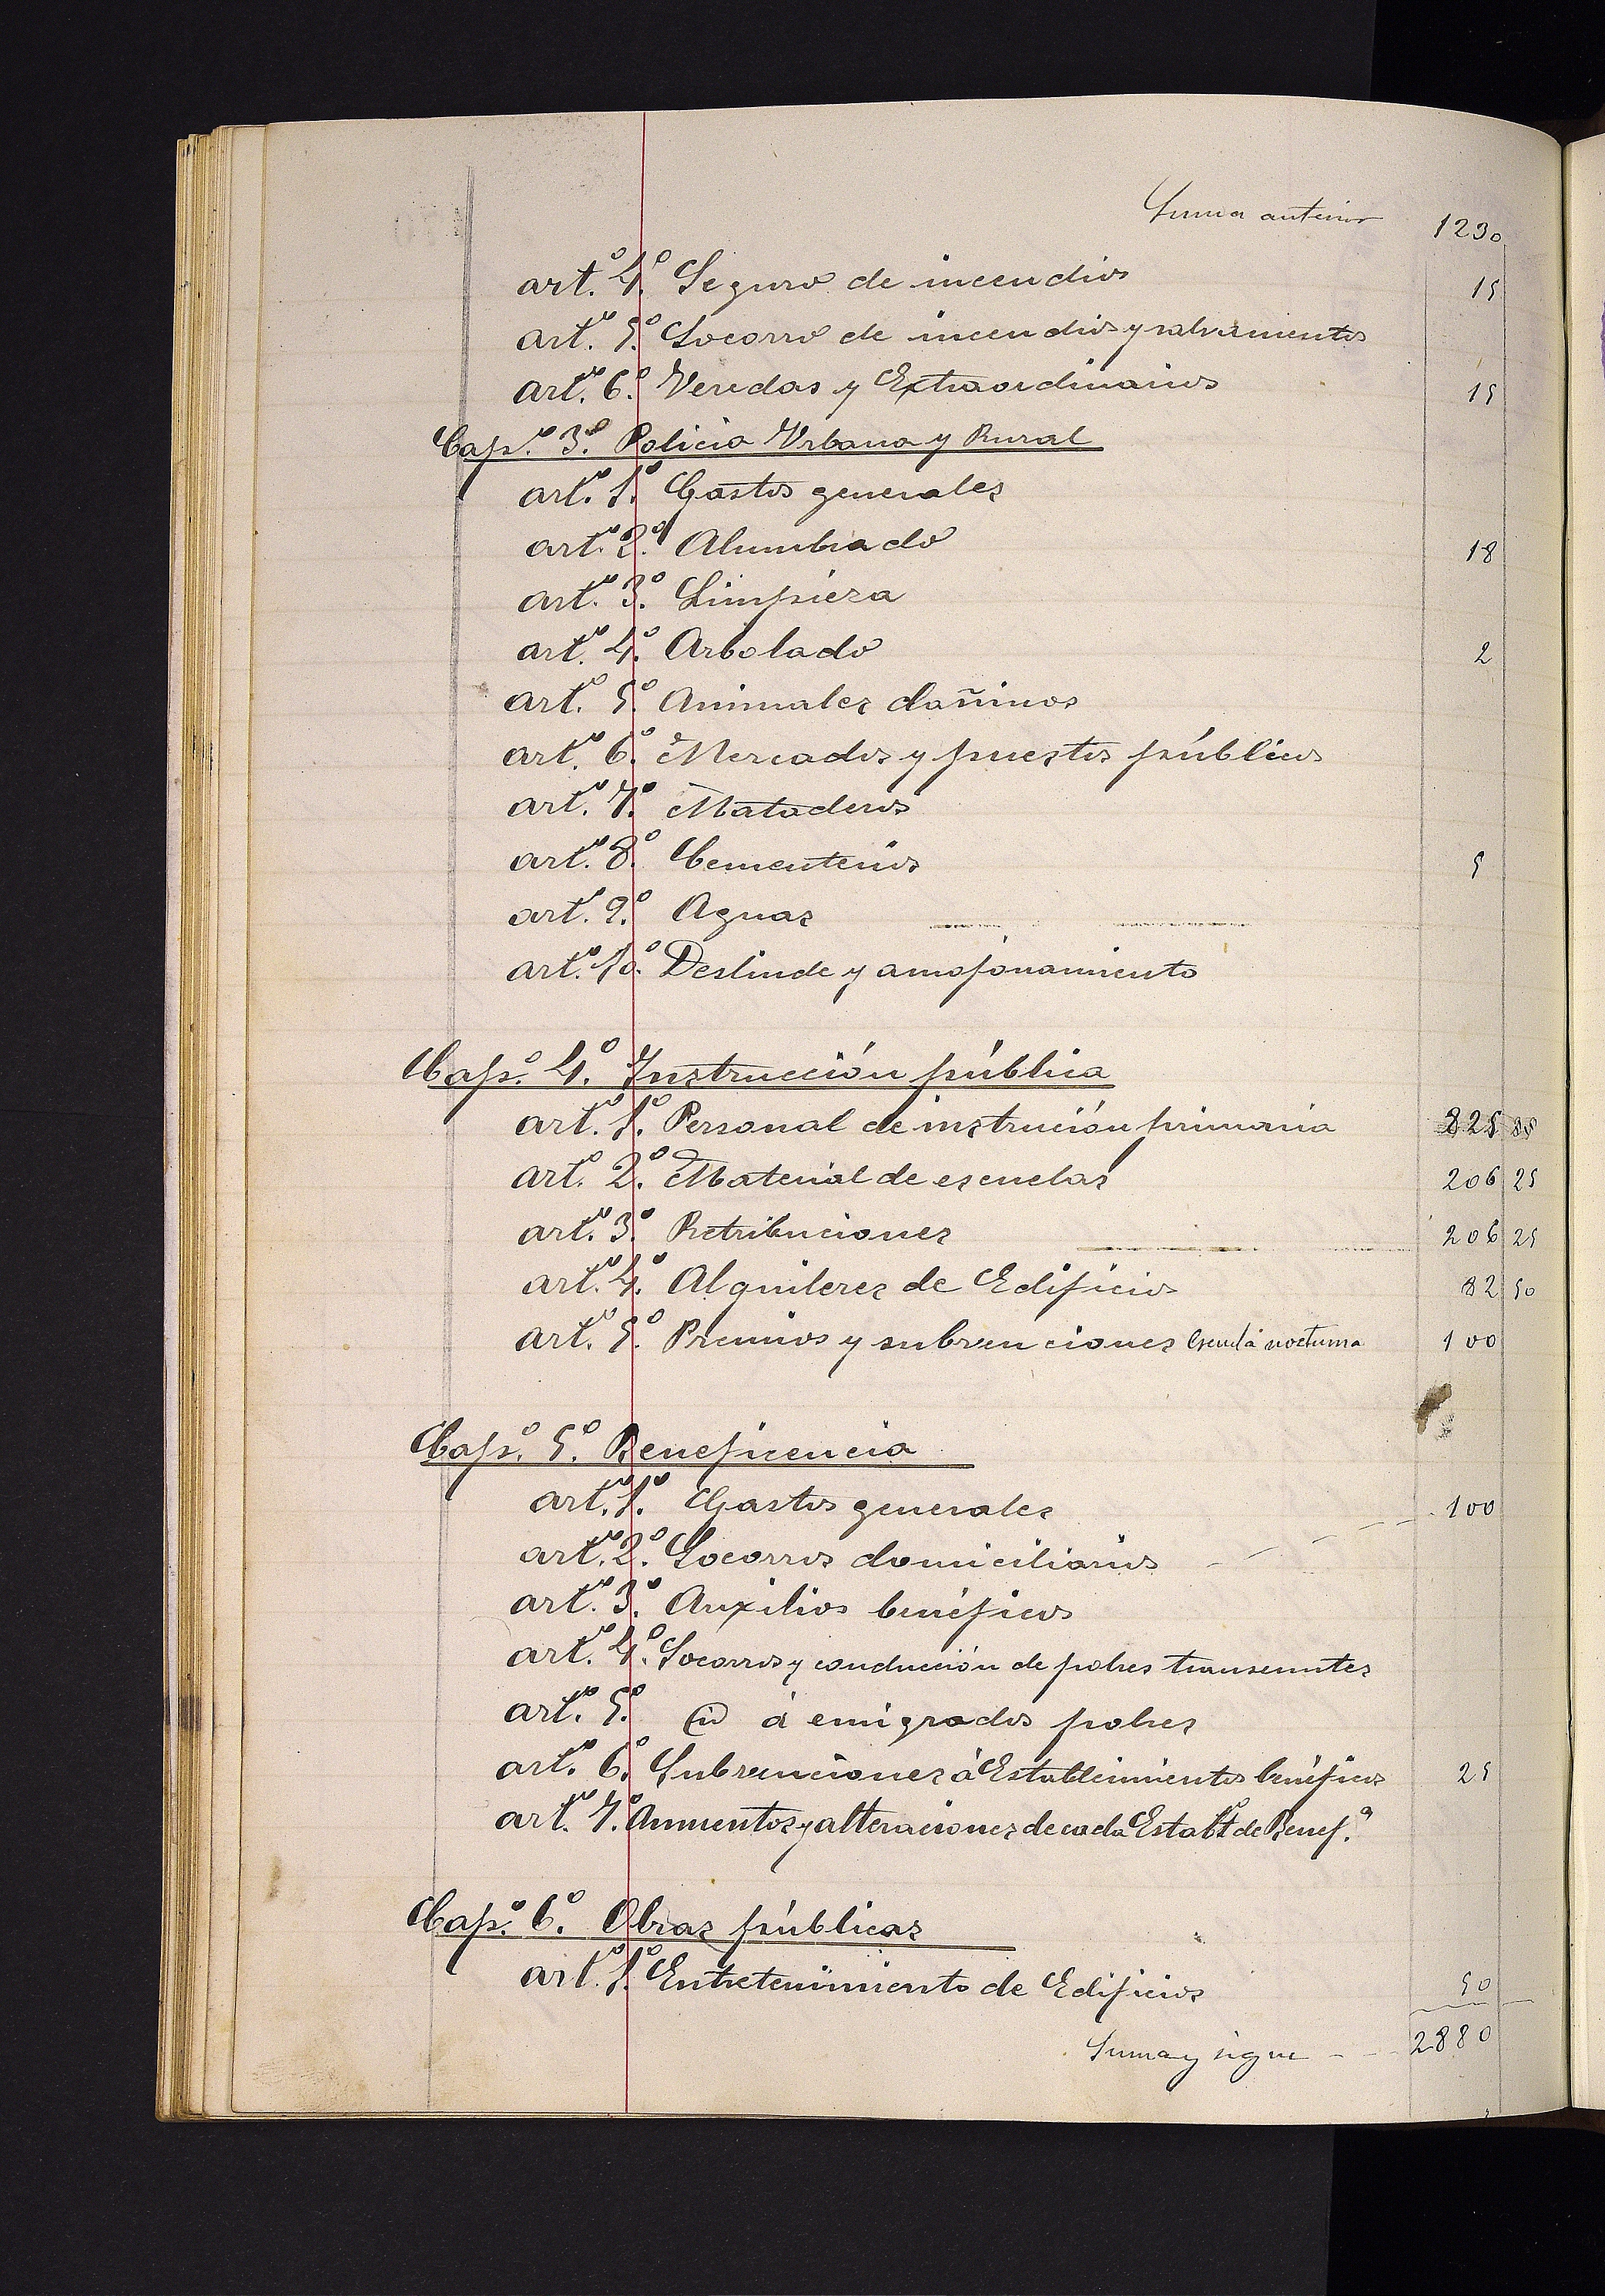 Suma anterior 1230
art.º 4.º Seguro de incendios 15
art.º 5.º Socorro de incendios y salvamentos
art.º 6.º Veredas y Extraordinarios 15
Cap.º 3.º Policia Urbana y Rural
art.º 1.º Gastos generales
art.º 2.º Alumbrado 18
art.º 3.º Limpieza
art.º 4.º Arbolado 2
art.º 5.º Animales dañinos
art.º 6.º Mercados y puestos públicos
art.º 7.º Mataderos
art.º 8.º Cementerios 5
art.º 9.º Aguas
art.º 10.º Deslinde y amojonamiento
Cap.º 4.º Instrucción pública
art.º 1.º Personal de instrución primaria 825
art.º 2.º Material de escuelas 206 25
art.º 3.º Retribuciones 206 25
art.º 4.º Alquileres de Edificios 82 50
art.º 5.º Premios y subvenciones Escuela nocturna 100
Cap.º 5.º Beneficencia
art.º 1.º Gastos generales 100
art.º 2.º Socorros domiciliarios
art.º 3.º Auxilios benéficos
art.º 4.º Socorros y conducción de pobres transeuntes
art.º 5.º á emigrados pobres
art.º 6.º Subvenciones á Establecimientos benéficos 25
art.º 7.º Aumentos y alteraciones de cada Establ.º de Benef.ª
Cap.º 6.º Obras públicas
art.º 1.º Entretenimiento de Edificios 50
Suma y sigue - - 2880